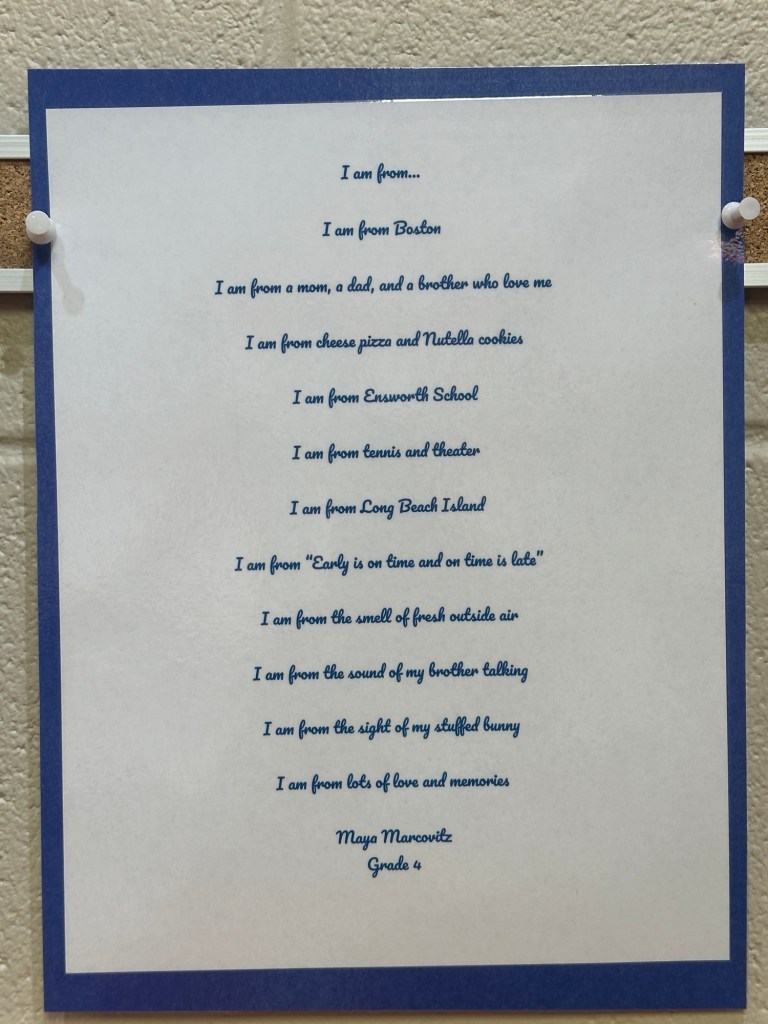 I am from...
I am from Boston
I am from a mom, a dad, and a brother who love me
I am from cheese pizza and Nutella cookies
I am from Ensworth School
I am from tennis and theater
I am from Long Beach Island
I am from “Early is on time and on time is late”
I am from the smell of fresh outside air
I am from the sound of my brother talking
I am from the sight of my stuffed bunny
I am from lots of love and memories
Maya Marcovitz
Grade 4